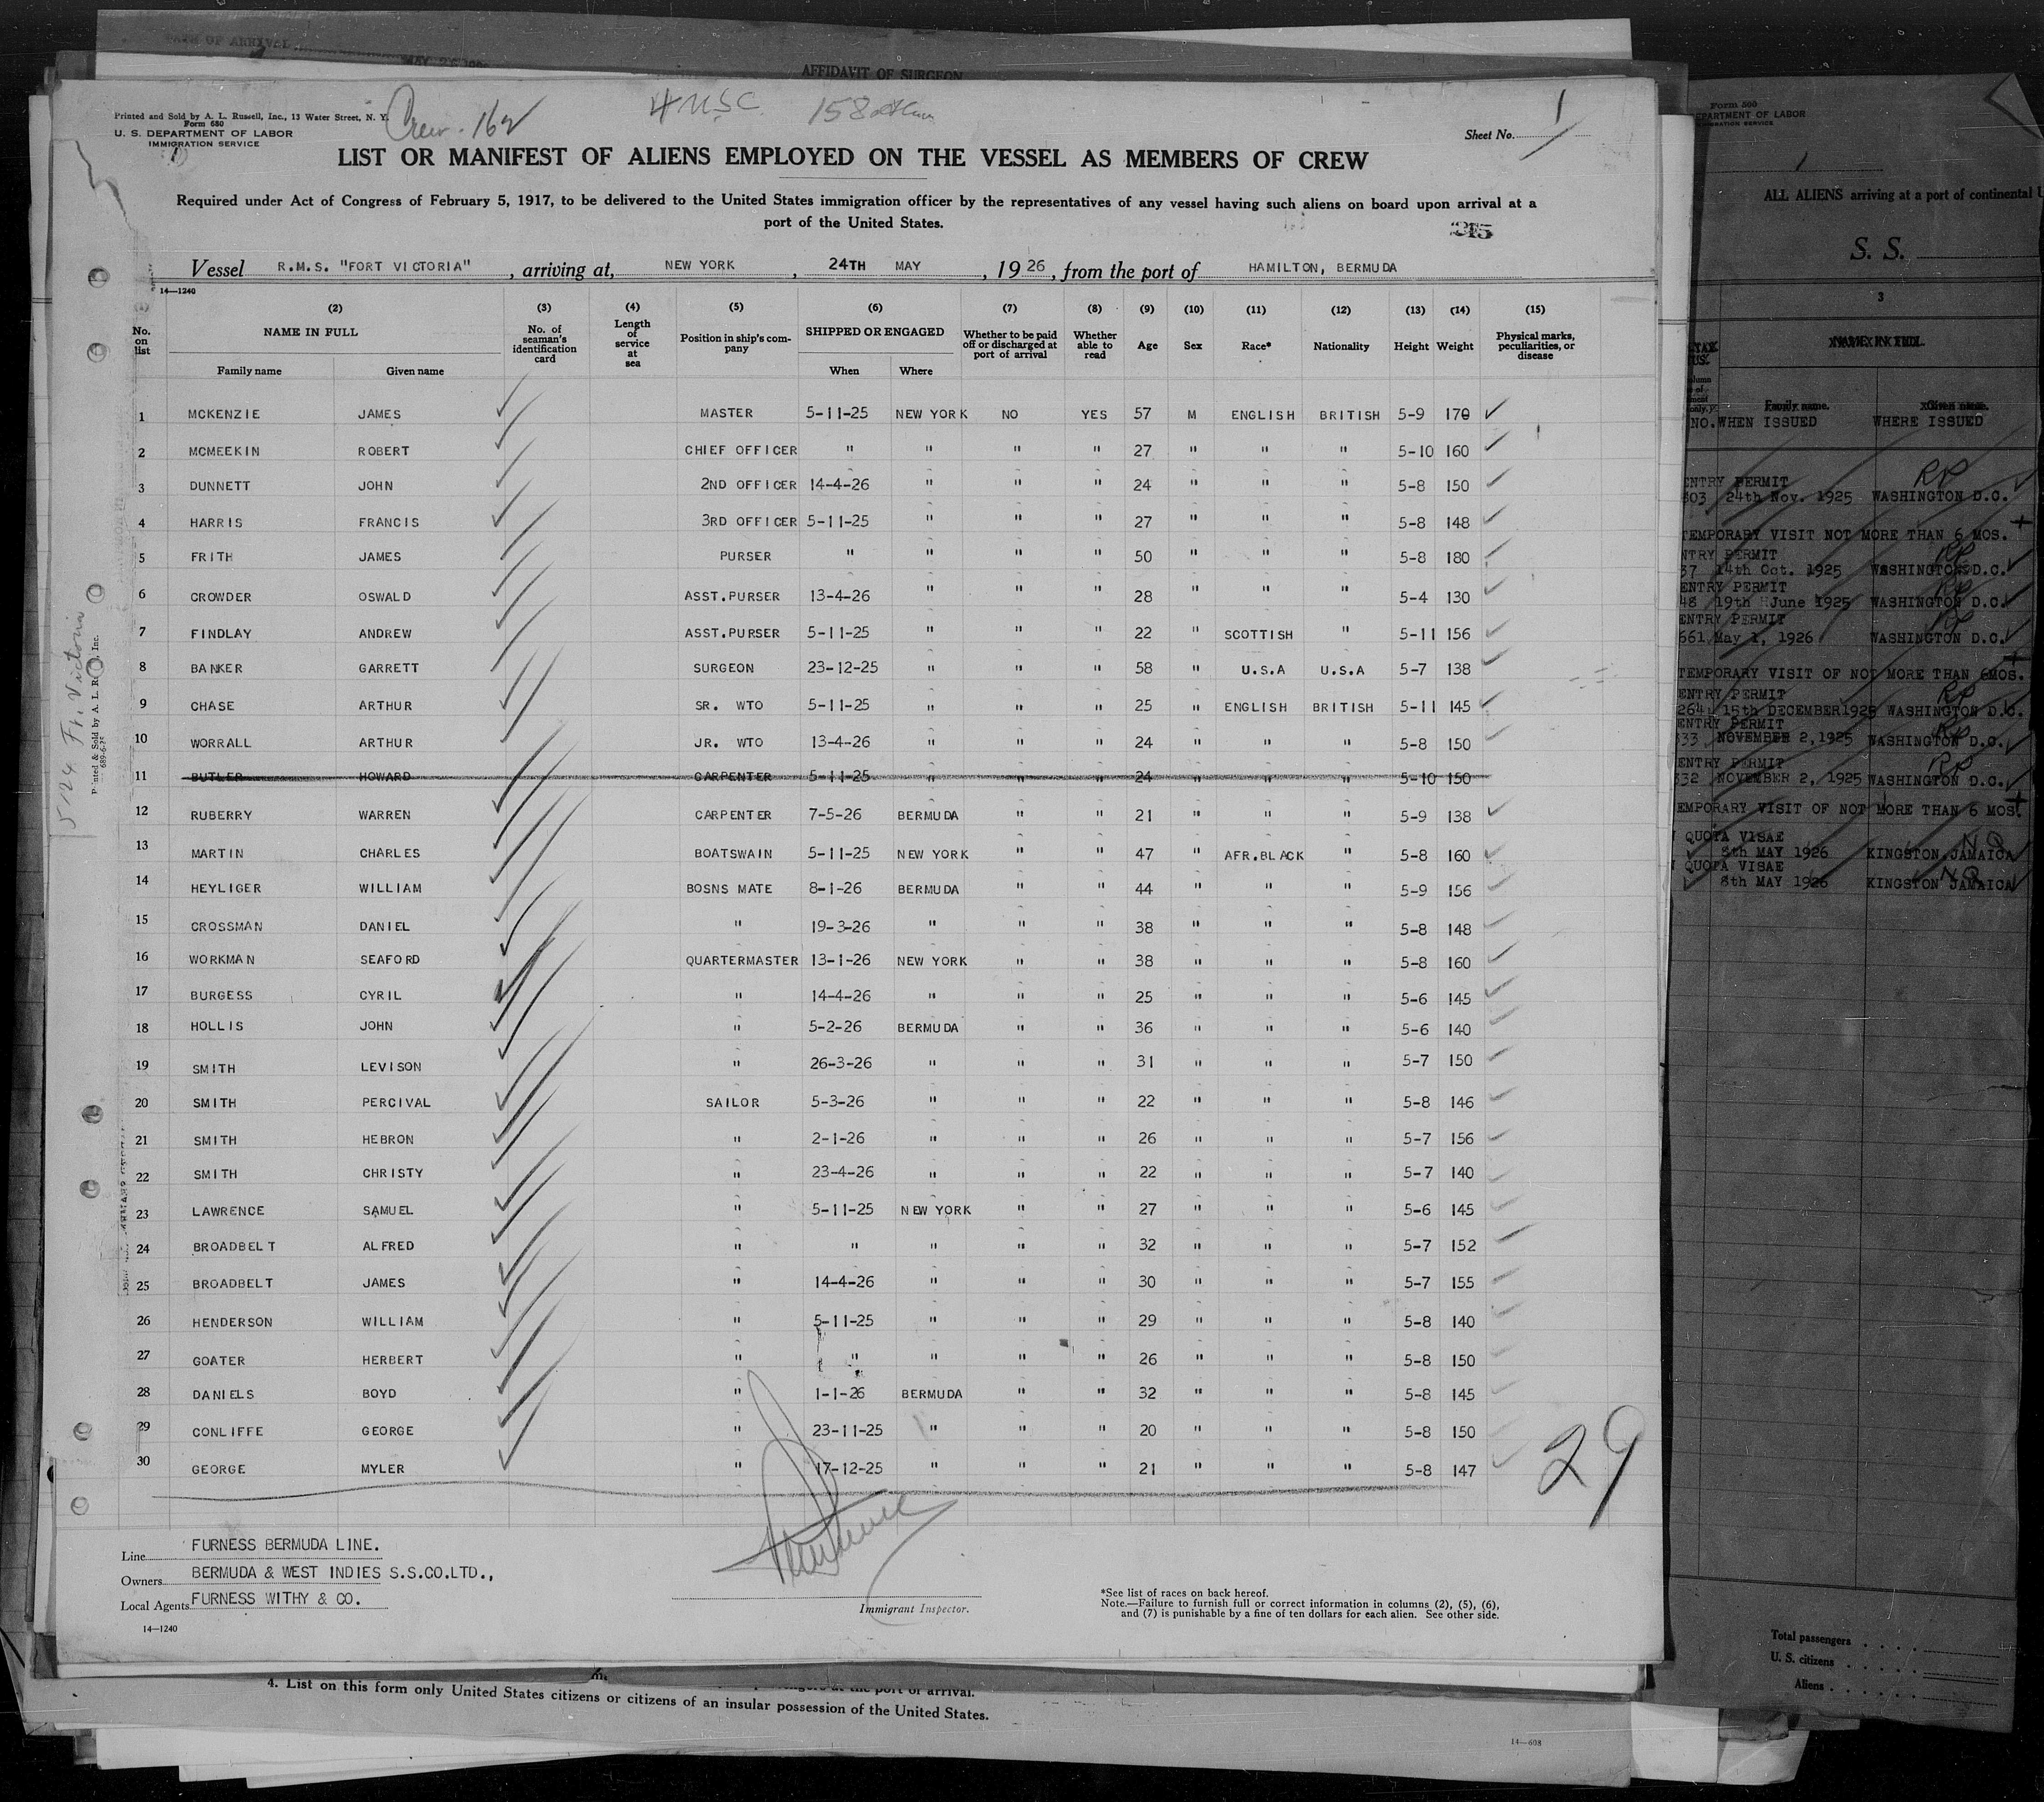 AFFIDAVIT OF SURGEON
Printed and Sold by A. L. Russell, Inc., 13 Water Street, N. Y.
Form 680
U. S. DEPARTMENT OF LABOR
IMMIGRATION SERVICE
Crew - 162
4 USC
158
Sheet No. 1
LIST OR MANIFEST OF ALIENS EMPLOYED ON THE VESSEL AS MEMBERS OF CREW
Required under Act of Congress of February 5, 1917, to be delivered to the United States immigration officer by the representatives of any vessel having such aliens on board upon arrival at a
port of the United States.
Vessel R.M.S. "FORT VICTORIA", arriving at, NEW YORK, 24TH MAY, 1926, from the port of HAMILTON, BERMUDA
14—1240
(2) (3) (4) (5) (6) (7) (8) (9) (10) (11) (12) (13) (14) (15)
No. on list NAME IN FULL No. of seaman's identification card Length of service at sea Position in ship's company SHIPPED OR ENGAGED Whether to be paid off or discharged at port of arrival Whether able to read Age Sex Race* Nationality Height Weight Physical marks, peculiarities, or disease
Family name Given name When Where
1 MCKENZIE JAMES MASTER 5-11-25 NEW YORK NO YES 57 M ENGLISH BRITISH 5-9 170
2 MCMEEKIN ROBERT CHIEF OFFICER " " " " 27 " " " 5-10 160
3 DUNNETT JOHN 2ND OFFICER 14-4-26 " " " 24 " " " 5-8 150
4 HARRIS FRANCIS 3RD OFFICER 5-11-25 " " " 27 " " " 5-8 148
5 FRITH JAMES PURSER " " " " 50 " " " 5-8 180
6 CROWDER OSWALD ASST.PURSER 13-4-26 " " " 28 " " " 5-4 130
7 FINDLAY ANDREW ASST.PURSER 5-11-25 " " " 22 " SCOTTISH " 5-11 156
8 BANKER GARRETT SURGEON 23-12-25 " " " 58 " U.S.A U.S.A 5-7 138
9 CHASE ARTHUR SR. WTO 5-11-25 " " " 25 " ENGLISH BRITISH 5-11 145
10 WORRALL ARTHUR JR. WTO 13-4-26 " " " 24 " " " 5-8 150
11 BUTLER HOWARD CARPENTER 5-11-25 " " " 24 " " " 5-10 150
12 RUBERRY WARREN CARPENTER 7-5-26 BERMUDA " " 21 " " " 5-9 138
13 MARTIN CHARLES BOATSWAIN 5-11-25 NEW YORK " " 47 " AFR.BLACK " 5-8 160
14 HEYLIGER WILLIAM BOSNS MATE 8-1-26 BERMUDA " " 44 " " " 5-9 156
15 CROSSMAN DANIEL " 19-3-26 " " " 38 " " " 5-8 148
16 WORKMAN SEAFORD QUARTERMASTER 13-1-26 NEW YORK " " 38 " " " 5-8 160
17 BURGESS CYRIL " 14-4-26 " " " 25 " " " 5-6 145
18 HOLLIS JOHN " 5-2-26 BERMUDA " " 36 " " " 5-6 140
19 SMITH LEVISON " 26-3-26 " " " 31 " " " 5-7 150
20 SMITH PERCIVAL SAILOR 5-3-26 " " " 22 " " " 5-8 146
21 SMITH HEBRON " 2-1-26 " " " 26 " " " 5-7 156
22 SMITH CHRISTY " 23-4-26 " " " 22 " " " 5-7 140
23 LAWRENCE SAMUEL " 5-11-25 NEW YORK " " 27 " " " 5-6 145
24 BROADBELT ALFRED " " " " " 32 " " " 5-7 152
25 BROADBELT JAMES " 14-4-26 " " " 30 " " " 5-7 155
26 HENDERSON WILLIAM " 5-11-25 " " " 29 " " " 5-8 140
27 GOATER HERBERT " " " " " 26 " " " 5-8 150
28 DANIELS BOYD " 1-1-26 BERMUDA " " 32 " " " 5-8 145
29 CONLIFFE GEORGE " 23-11-25 " " " 20 " " " 5-8 150
30 GEORGE MYLER " 17-12-25 " " " 21 " " " 5-8 147
29
Line FURNESS BERMUDA LINE.
Owners BERMUDA & WEST INDIES S.S.CO.LTD.,
Local Agents FURNESS WITHY & CO.
14—1240
Immigrant Inspector.
*See list of races on back hereof.
Note.—Failure to furnish full or correct information in columns (2), (5), (6),
and (7) is punishable by a fine of ten dollars for each alien. See other side.
5/24 Ft. Victoria
4. List on this form only United States citizens or citizens of an insular possession of the United States.
14—608
Form 500
DEPARTMENT OF LABOR
IMMIGRATION SERVICE
ALL ALIENS arriving at a port of continental
S. S.
3
NAME IN FULL
Family name. Given name.
NO. WHEN ISSUED WHERE ISSUED
ENTRY PERMIT
24th Nov. 1925 WASHINGTON D.C.
TEMPORARY VISIT NOT MORE THAN 6 MOS.
ENTRY PERMIT
37 14th Oct. 1925 WASHINGTON D.C.
ENTRY PERMIT
48 19th June 1925 WASHINGTON D.C.
ENTRY PERMIT
661 May 1, 1926 WASHINGTON D.C.
TEMPORARY VISIT OF NOT MORE THAN 6MOS.
ENTRY PERMIT
15th DECEMBER WASHINGTON D.C.
ENTRY PERMIT
33 NOVEMBER 2, 1925 WASHINGTON D.C.
ENTRY PERMIT
332 NOVEMBER 2, 1925 WASHINGTON D.C.
TEMPORARY VISIT OF NOT MORE THAN 6 MOS.
QUOTA VISAE
8th MAY 1926 KINGSTON JAMAICA
QUOTA VISAE
8th MAY 1926 KINGSTON JAMAICA
Total passengers
U. S. citizens
Aliens